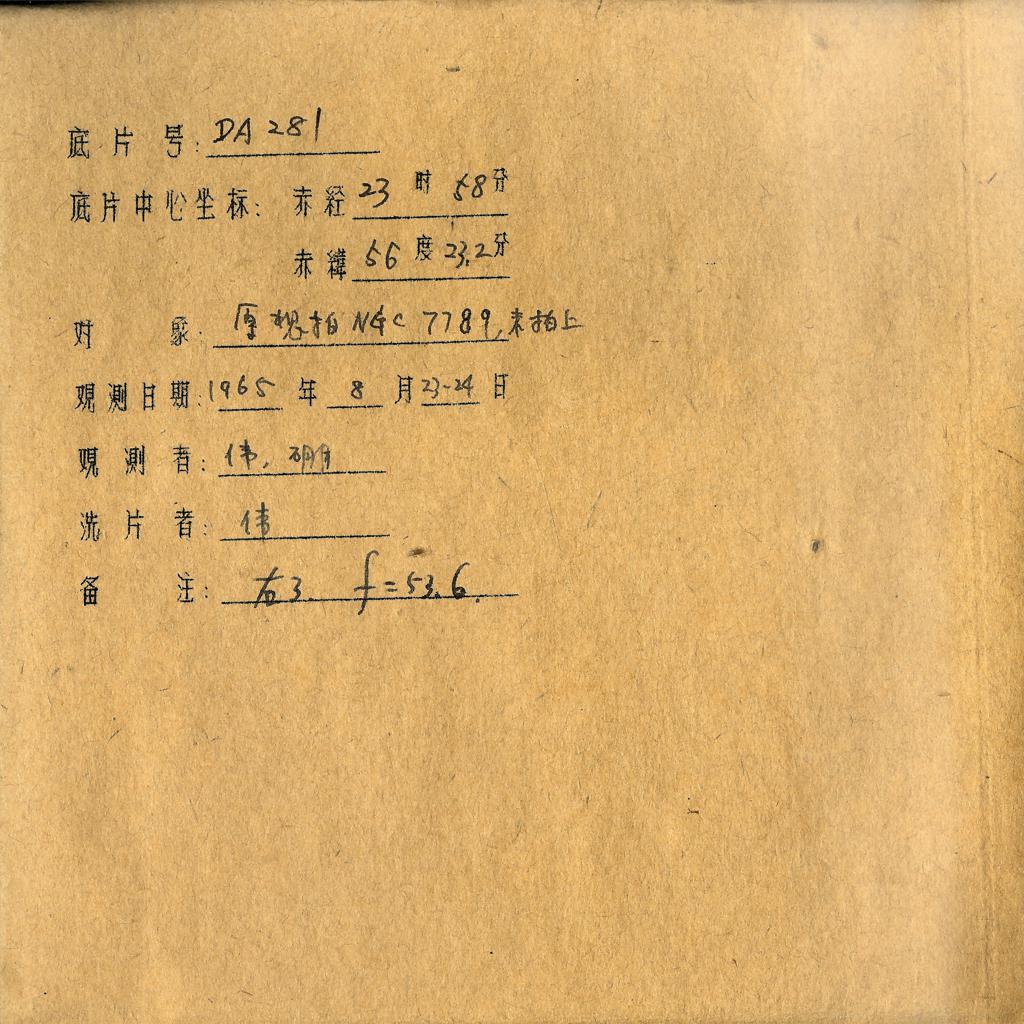 底片号: DA 281
底片中心坐标: 赤经 23 时 58 分
赤纬 56 度 23.2 分
对象: 原想拍 NGC 7789, 未拍上
观测日期: 1965 年 8 月 23-24 日
观测者: 伟, 硼
洗片者: 伟
备注: 右3. f=53.6.